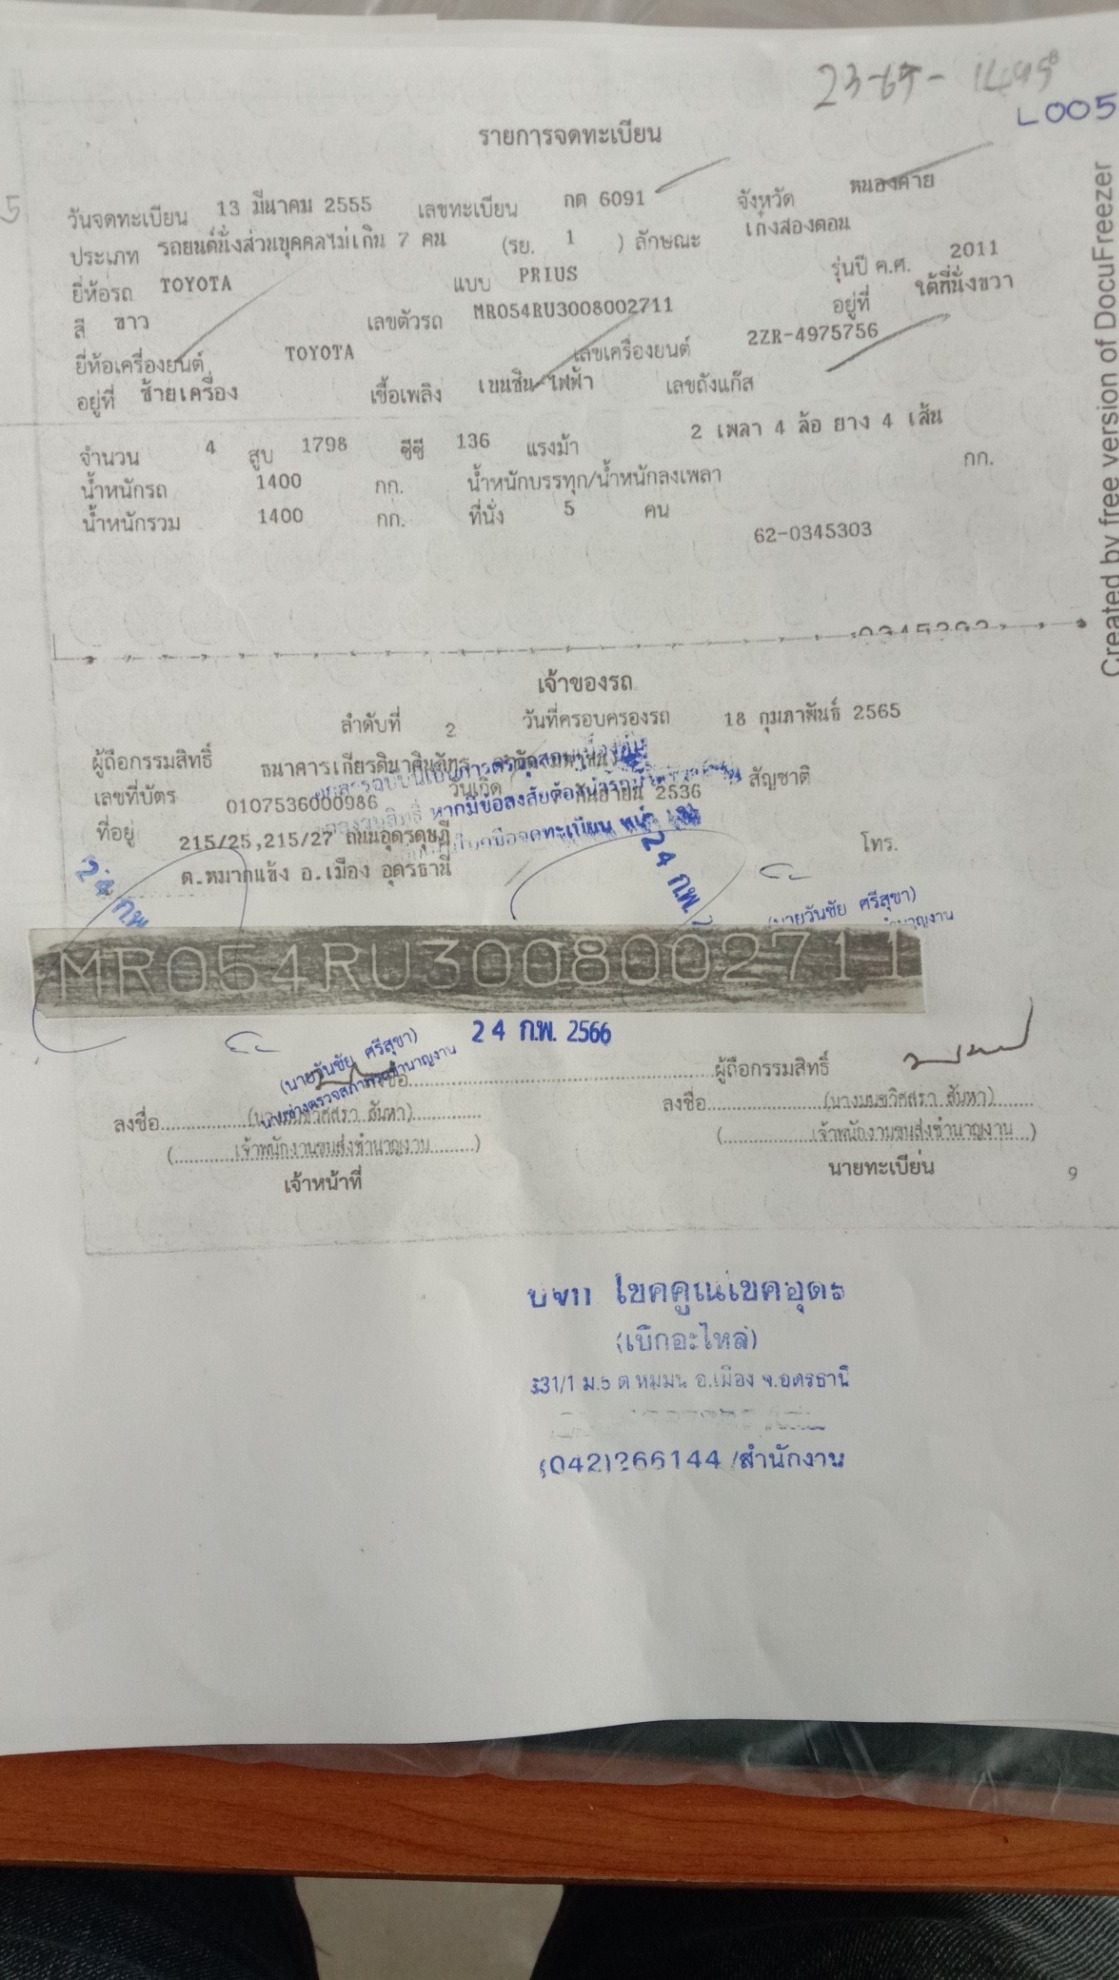 L005
รายการจดทะเบียน
วันจดทะเบียน 13 มีนาคม 2555 เลขทะเบียน กต 6091 จังหวัด หนองคาย
ประเภท รถยนต์นั่งส่วนบุคคลไม่เกิน 7 คน (รย. 1 ) ลักษณะ เก๋งสองตอน
ยี่ห้อรถ TOYOTA แบบ PRIUS รุ่นปี ค.ศ. 2011
สี ขาว เลขตัวรถ MR054RU3008002711 อยู่ที่ ใต้ที่นั่งขวา
ยี่ห้อเครื่องยนต์ TOYOTA เลขเครื่องยนต์ 2ZR-4975756
อยู่ที่ ซ้ายเครื่อง เชื้อเพลิง เบนซิน-ไฟฟ้า เลขถังแก๊ส
จำนวน 4 สูบ 1798 ซีซี 136 แรงม้า 2 เพลา 4 ล้อ ยาง 4 เส้น
น้ำหนักรถ 1400 กก. น้ำหนักบรรทุก/น้ำหนักลงเพลา กก.
น้ำหนักรวม 1400 กก. ที่นั่ง 5 คน
62-0345303
เจ้าของรถ
ลำดับที่ 2 วันที่ครอบครองรถ 18 กุมภาพันธ์ 2565
ผู้ถือกรรมสิทธิ์ ธนาคารเกียรตินาคินภัทร
เลขที่บัตร 0107536000986 วันเกิด กันยายน 2536 สัญชาติ
หากมีข้อสงสัยต้อง
ที่อยู่ 215/25,215/27 ถนนอุดรดุษฎี โทร.
ต.หมากแข้ง อ.เมือง อุดรธานี
24 ก.พ.
24 ก.พ.
(นายวันชัย ศรีสุขา)
MR054RU3008002711
24 ก.พ. 2566
(นายวันชัย ศรีสุขา)
นายช่างตรวจสภาพรถชำนาญงาน
ผู้ถือกรรมสิทธิ์
ลงชื่อ ลงชื่อ
(เจ้าพนักงานขนส่งชำนาญงาน) (เจ้าพนักงานขนส่งชำนาญงาน)
เจ้าหน้าที่ นายทะเบียน
9
(เบิกอะไหล่)
331/1 ม.5 ต หมูม่น อ.เมือง จ.อุดรธานี
(042)266144 /สำนักงาน
Created by free version of DocuFreezer